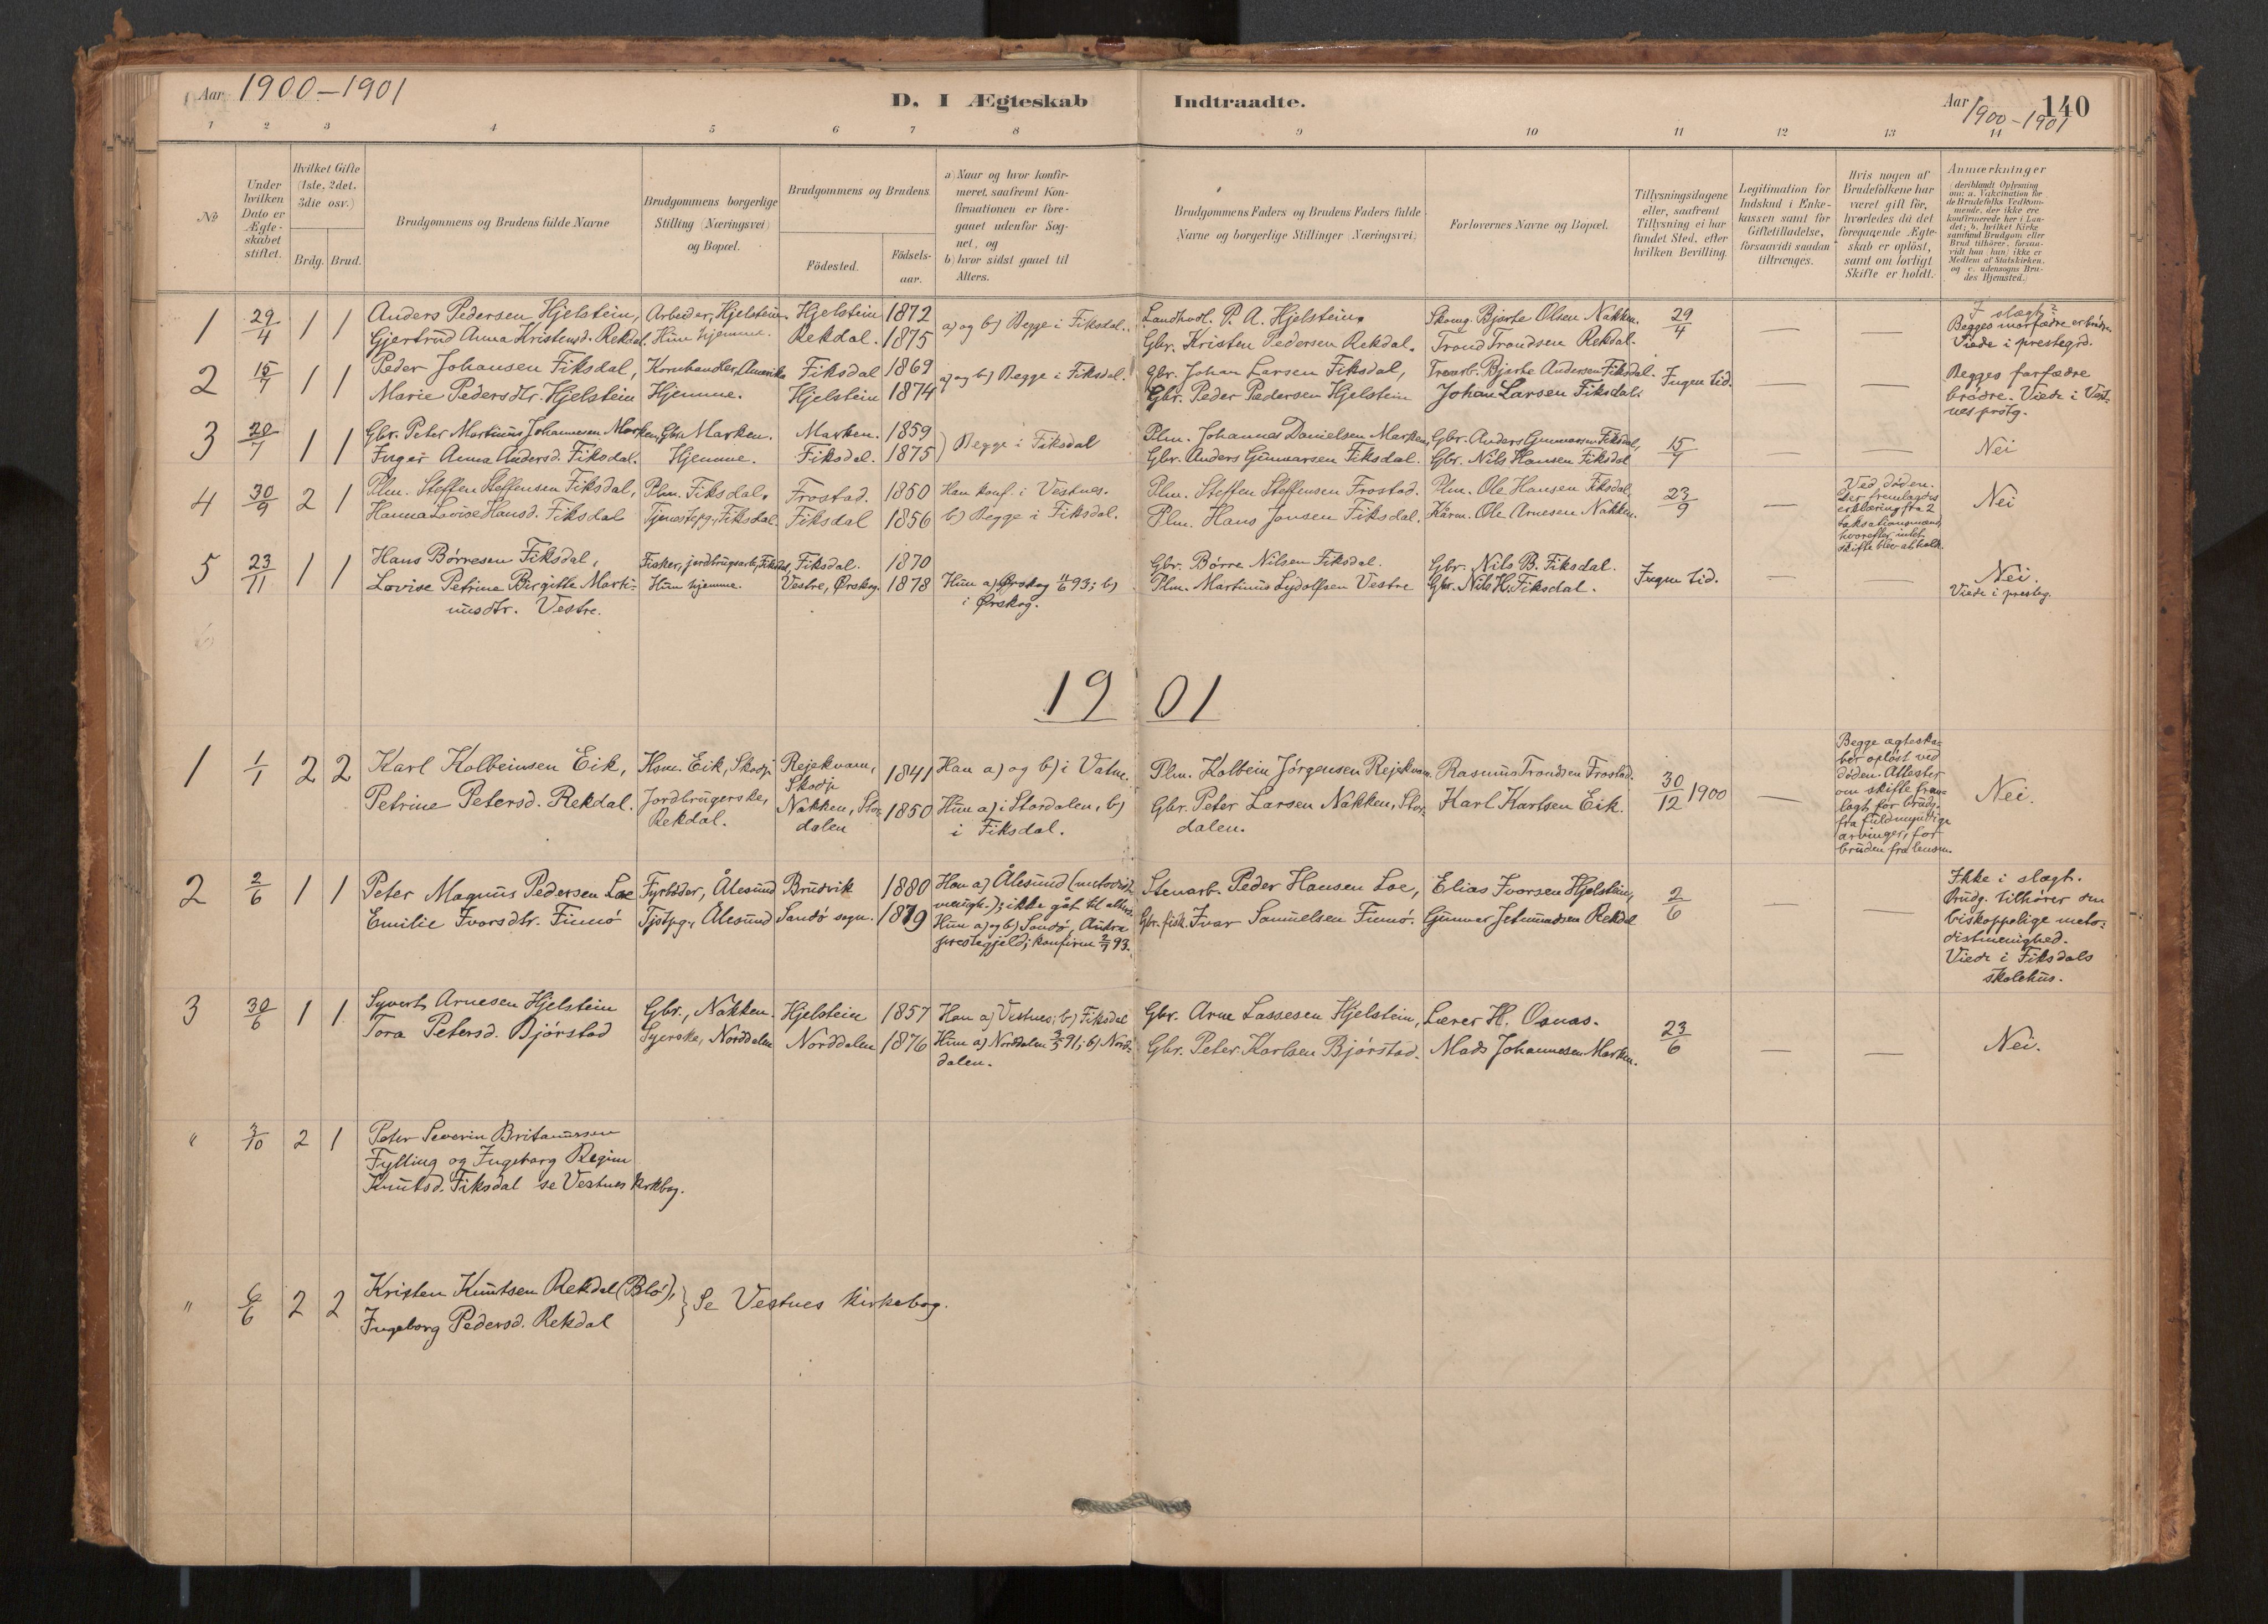 Aar 1900–1901
D. I Ægteskab Indtraadte.
Aar 1900–1901 140
1 2 3 4 5 6 7 8 9 10 11 12 13 14
No
Under hvilken Dato er Ægte-skabet stiftet.
Hvilket Gifte (1ste, 2det, 3die osv.)
Brdg. Brud.
Brudgommens og Brudens fulde Navne
Brudgommens borgerlige Stilling (Næringsvei) og Bopæl.
Brudgommens og Brudens
Födested.
Födsels-aar.
a) Naar og hvor konfir-meret, saafremt Kon-firmationen er fore-gaaet udenfor Sog-net, og
b) hvor sidst gaaet til Alters.
Brudgommens Faders og Brudens Faders fulde Navne og borgerlige Stillinger (Næringsvei)
Forlovernes Navne og Bopæl.
Tillysningsdagene eller, saafremt Tillysning ei har fundet Sted, efter hvilken Bevilling.
Legitimation for Indskud i Enke-kassen samt for Giftetilladelse, forsaavidt saadan tiltrænges.
Hvis nogen af Brudefolkene har været gift för, hvorledes da det foregaaende Ægte-skab er oplöst, samt om lovligt Skifte er holdt.
Anmærkninger (deriblandt Oplysning om: a. Vakcination for de Brudefolks Vedkom-mende, der ikke ere konfirmerede her i Lan-det; b. hvilket Kirke-samfund Brudgom eller Brud tilhörer, forsaa-vidt han (hun) ikke er Medlem af Statskirken, og c. udensogns Bru-des Hjemsted.)
1 29/4 1 1 Anders Pedersen Hjelstein, Arbeider, Hjelstein. Hjelstein 1872 a) og b) Begge i Fiksdal. Landhndl. P. A. Hjelstein. Skomg. Bjarte Olsen Nakken. 29/4 — — I slægt:
Gjertrud Anna Kristensd. Rekdal. Hun hjemme. Rekdal. 1875 Gbr. Kristen Pedersen Rekdal. Trond Trondsen Rekdal. Begges morfædre er brødre.
Viede i prestegrd.
2 15/7 1 1 Peder Johansen Fiksdal, Kornhandler, Amerika Fiksdal 1869 a) og b) Begge i Fiksdal. Gbr. Johan Larsen Fiksdal, Trearb. Bjarte Andersen Fiksdal. Ingen tid. — — Begges farfædre
Marie Pedersdtr. Hjelstein Hjemme. Hjelstein 1874 Gbr. Peder Pedersen Hjelstein Johan Larsen Fiksdal. brödre. Viede i Vest-
nes prstg.
3 20/7 1 1 Gbr. Peter Martinus Johannesen Marken, Gbr. Marken. Marken. 1859 ) Begge i Fiksdal Plm. Johannes Danielsen Marken, Gbr. Anders Gunnarsen Fiksdal, 15/7 — — Nei
Inger Anna Andersd. Fiksdal. Hjemme. Fiksdal. 1875 Gbr. Anders Gunnarsen Fiksdal. Gbr. Nils Hansen Fiksdal
4 30/9 2 1 Plm. Steffen Steffensen Fiksdal, Plm. Fiksdal. Frostad. 1850 Han konf. i Vestnes. Plm. Steffen Steffensen Frostad. Plm. Ole Hansen Fiksdal, 23/9 — Ved döden. Nei
Hanna Lovise Hansd. Fiksdal Tjenestepg., Fiksdal. Fiksdal 1856 b) Begge i Fiksdal. Plm. Hans Jonsen Fiksdal. Kårm. Ole Arnesen Nakken. Der fremlagdes
erklæring fra 2
taksationsmænd,
hvorefter intet
skifte blev afholdt.
5 23/11 1 1 Hans Börresen Fiksdal, Fisker, jordbrugsarb., Fiksdal, Fiksdal. 1870 Gbr. Börre Nilsen Fiksdal. Gbr. Nils B. Fiksdal. Ingen tid. — — Nei.
Lovise Petrine Birgitte Marti- Hun hjemme. Vestre, Ørskog. 1878 Hun a) Ørskog 4/6 93; b) Plm. Martinus Lydolfsen Vestre Gbr. Nils H. Fiksdal. Viede i presteg.
nusdtr. Vestre. i Ørskog.
1901
1 1/1 2 2 Karl Kolbeinsen Eik, Hsm. Eik, Skodje Rejekvam, Skodje 1841 Han a) og b) i Vatne. Plm. Kolbein Jörgensen Rejekvam. Rasmus Trondsen Frostad. 30/12 1900 — Begge ægteska-
ber oplöst ved
döden. Attester
om skifte frem-
lagt for brudg.
fra fuldmyndige
arvinger, for
bruden fra lensm. Nei.
Petrine Petersd. Rekdal. Jordbrugerske, Rekdal. Nakken, Stor-dalen 1850 Hun a) i Stordalen, b) i Fiksdal. Gbr. Peter Larsen Nakken, Stor-dalen. Karl Karlsen Eik.
2 2/6 1 1 Peter Magnus Pedersen Loe Fyrböder, Ålesund Brudvik 1880 Han a) Ålesund (metodist-menigh.); ikke gåt til alters. Stenarb. Peder Hansen Loe, Elias Ivorsen Hjelstein, 2/6 — — Ikke i slægt.
Emilie Ivorsdtr. Finnö Tjstpg., Ålesund Sandö sogn. 1879 Hun a) og b) Sandö, Aukra prestegjeld; konfirm 2/7 93. Gbr. fisk. Ivar Samuelsen Finnö. Gunnar Jetmundsen Rekdal Brudg. tilhörer den
biskoppelige meto-
distmenighed.
Viede i Fiksdals
skolehus.
3 30/6 1 1 Syvert Arnesen Hjelstein Gbr., Nakken. Hjelstein 1857 Han a) Vestnes; b) Fiksdal Gbr. Arne Lassesen Hjelstein, Lærer H. Osnæs. 23/6 — — Nei.
Tora Petersd. Bjørstad Syerske, Norddalen Norddalen 1876 Hun a) Norddalen 3/5 91; b) Nord-dalen. Gbr. Peter Karlsen Bjørstad. Mads Johannesen Marken.
" 3/10 2 1 Peter Severin Britanussen
Fylling og Ingeborg Regine
Knutsd. Fiksdal se Vestnes kirkbog.
" 6/6 2 2 Kristen Knutsen Rekdal (Blö), } Se Vestnes kirkebog.
Ingeborg Pedersd. Rekdal